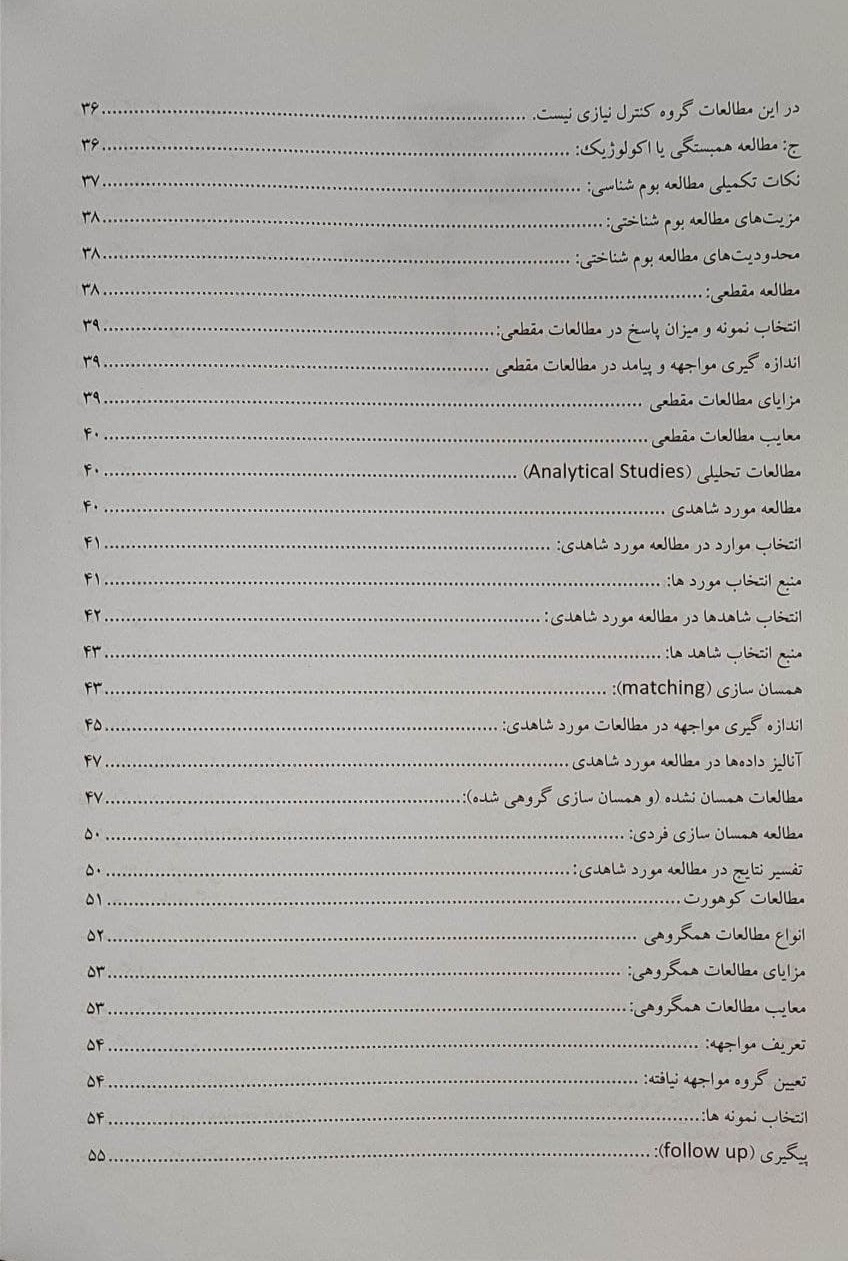 در این مطالعات گروه کنترل نیازی نیست. ........................ ۳۶
ج: مطالعه همبستگی یا اکولوژیک: ........................ ۳۶
نکات تکمیلی مطالعه بوم شناسی: ........................ ۳۷
مزیت‌های مطالعه بوم شناختی: ........................ ۳۸
محدودیت‌های مطالعه بوم شناختی: ........................ ۳۸
مطالعه مقطعی: ........................ ۳۸
انتخاب نمونه و میزان پاسخ در مطالعات مقطعی: ........................ ۳۹
اندازه گیری مواجهه و پیامد در مطالعات مقطعی ........................ ۳۹
مزایای مطالعات مقطعی ........................ ۳۹
معایب مطالعات مقطعی ........................ ۴۰
مطالعات تحلیلی (Analytical Studies) ........................ ۴۰
مطالعه مورد شاهدی ........................ ۴۰
انتخاب موارد در مطالعه مورد شاهدی: ........................ ۴۱
منبع انتخاب مورد ها: ........................ ۴۱
انتخاب شاهدها در مطالعه مورد شاهدی: ........................ ۴۲
منبع انتخاب شاهد ها: ........................ ۴۳
همسان سازی (matching): ........................ ۴۳
اندازه گیری مواجهه در مطالعات مورد شاهدی: ........................ ۴۵
آنالیز داده‌ها در مطالعه مورد شاهدی ........................ ۴۷
مطالعات همسان نشده (و همسان سازی گروهی شده): ........................ ۴۷
مطالعه همسان سازی فردی: ........................ ۵۰
تفسیر نتایج در مطالعه مورد شاهدی: ........................ ۵۰
مطالعات کوهورت ........................ ۵۱
انواع مطالعات همگروهی ........................ ۵۲
مزایای مطالعات همگروهی: ........................ ۵۳
معایب مطالعات همگروهی: ........................ ۵۳
تعریف مواجهه: ........................ ۵۴
تعیین گروه مواجهه نیافته: ........................ ۵۴
انتخاب نمونه ها: ........................ ۵۴
پیگیری (follow up): ........................ ۵۵